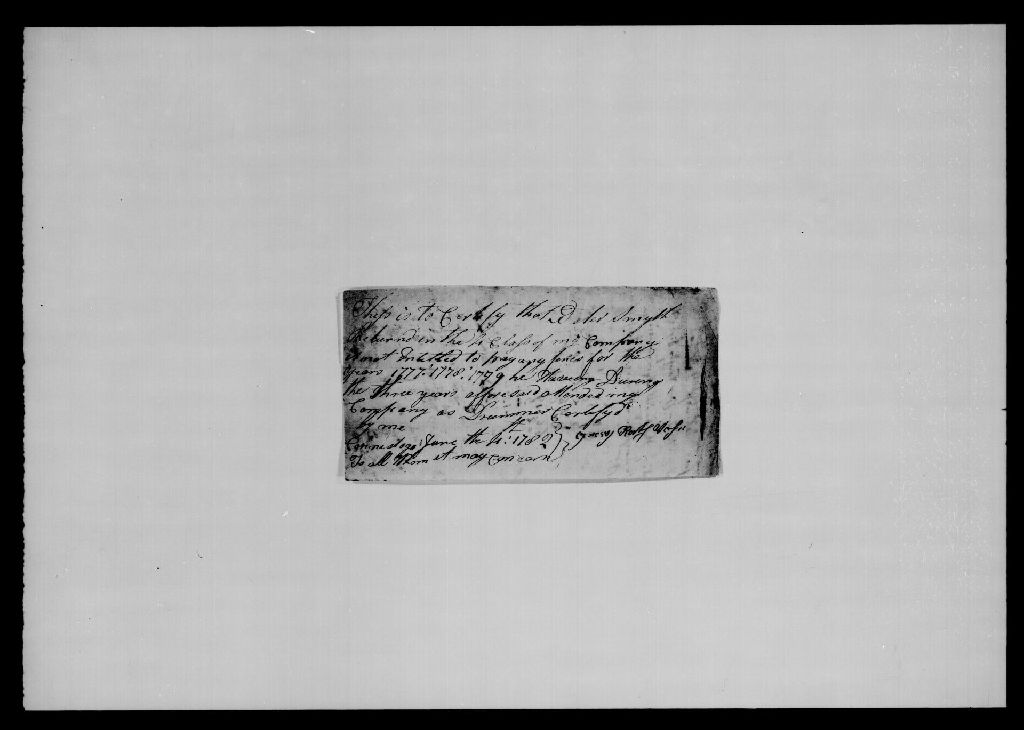 This is to Certify that Smyth
Returnd in the 4 Class of my Company
is not Entitled to pay any fines for the
years 1777: 1778: 1779 he During
the three years afforesaid attended my
Company as Drummer Certifyd
by me
June the 4th: 1782
To all whom it may Concarn